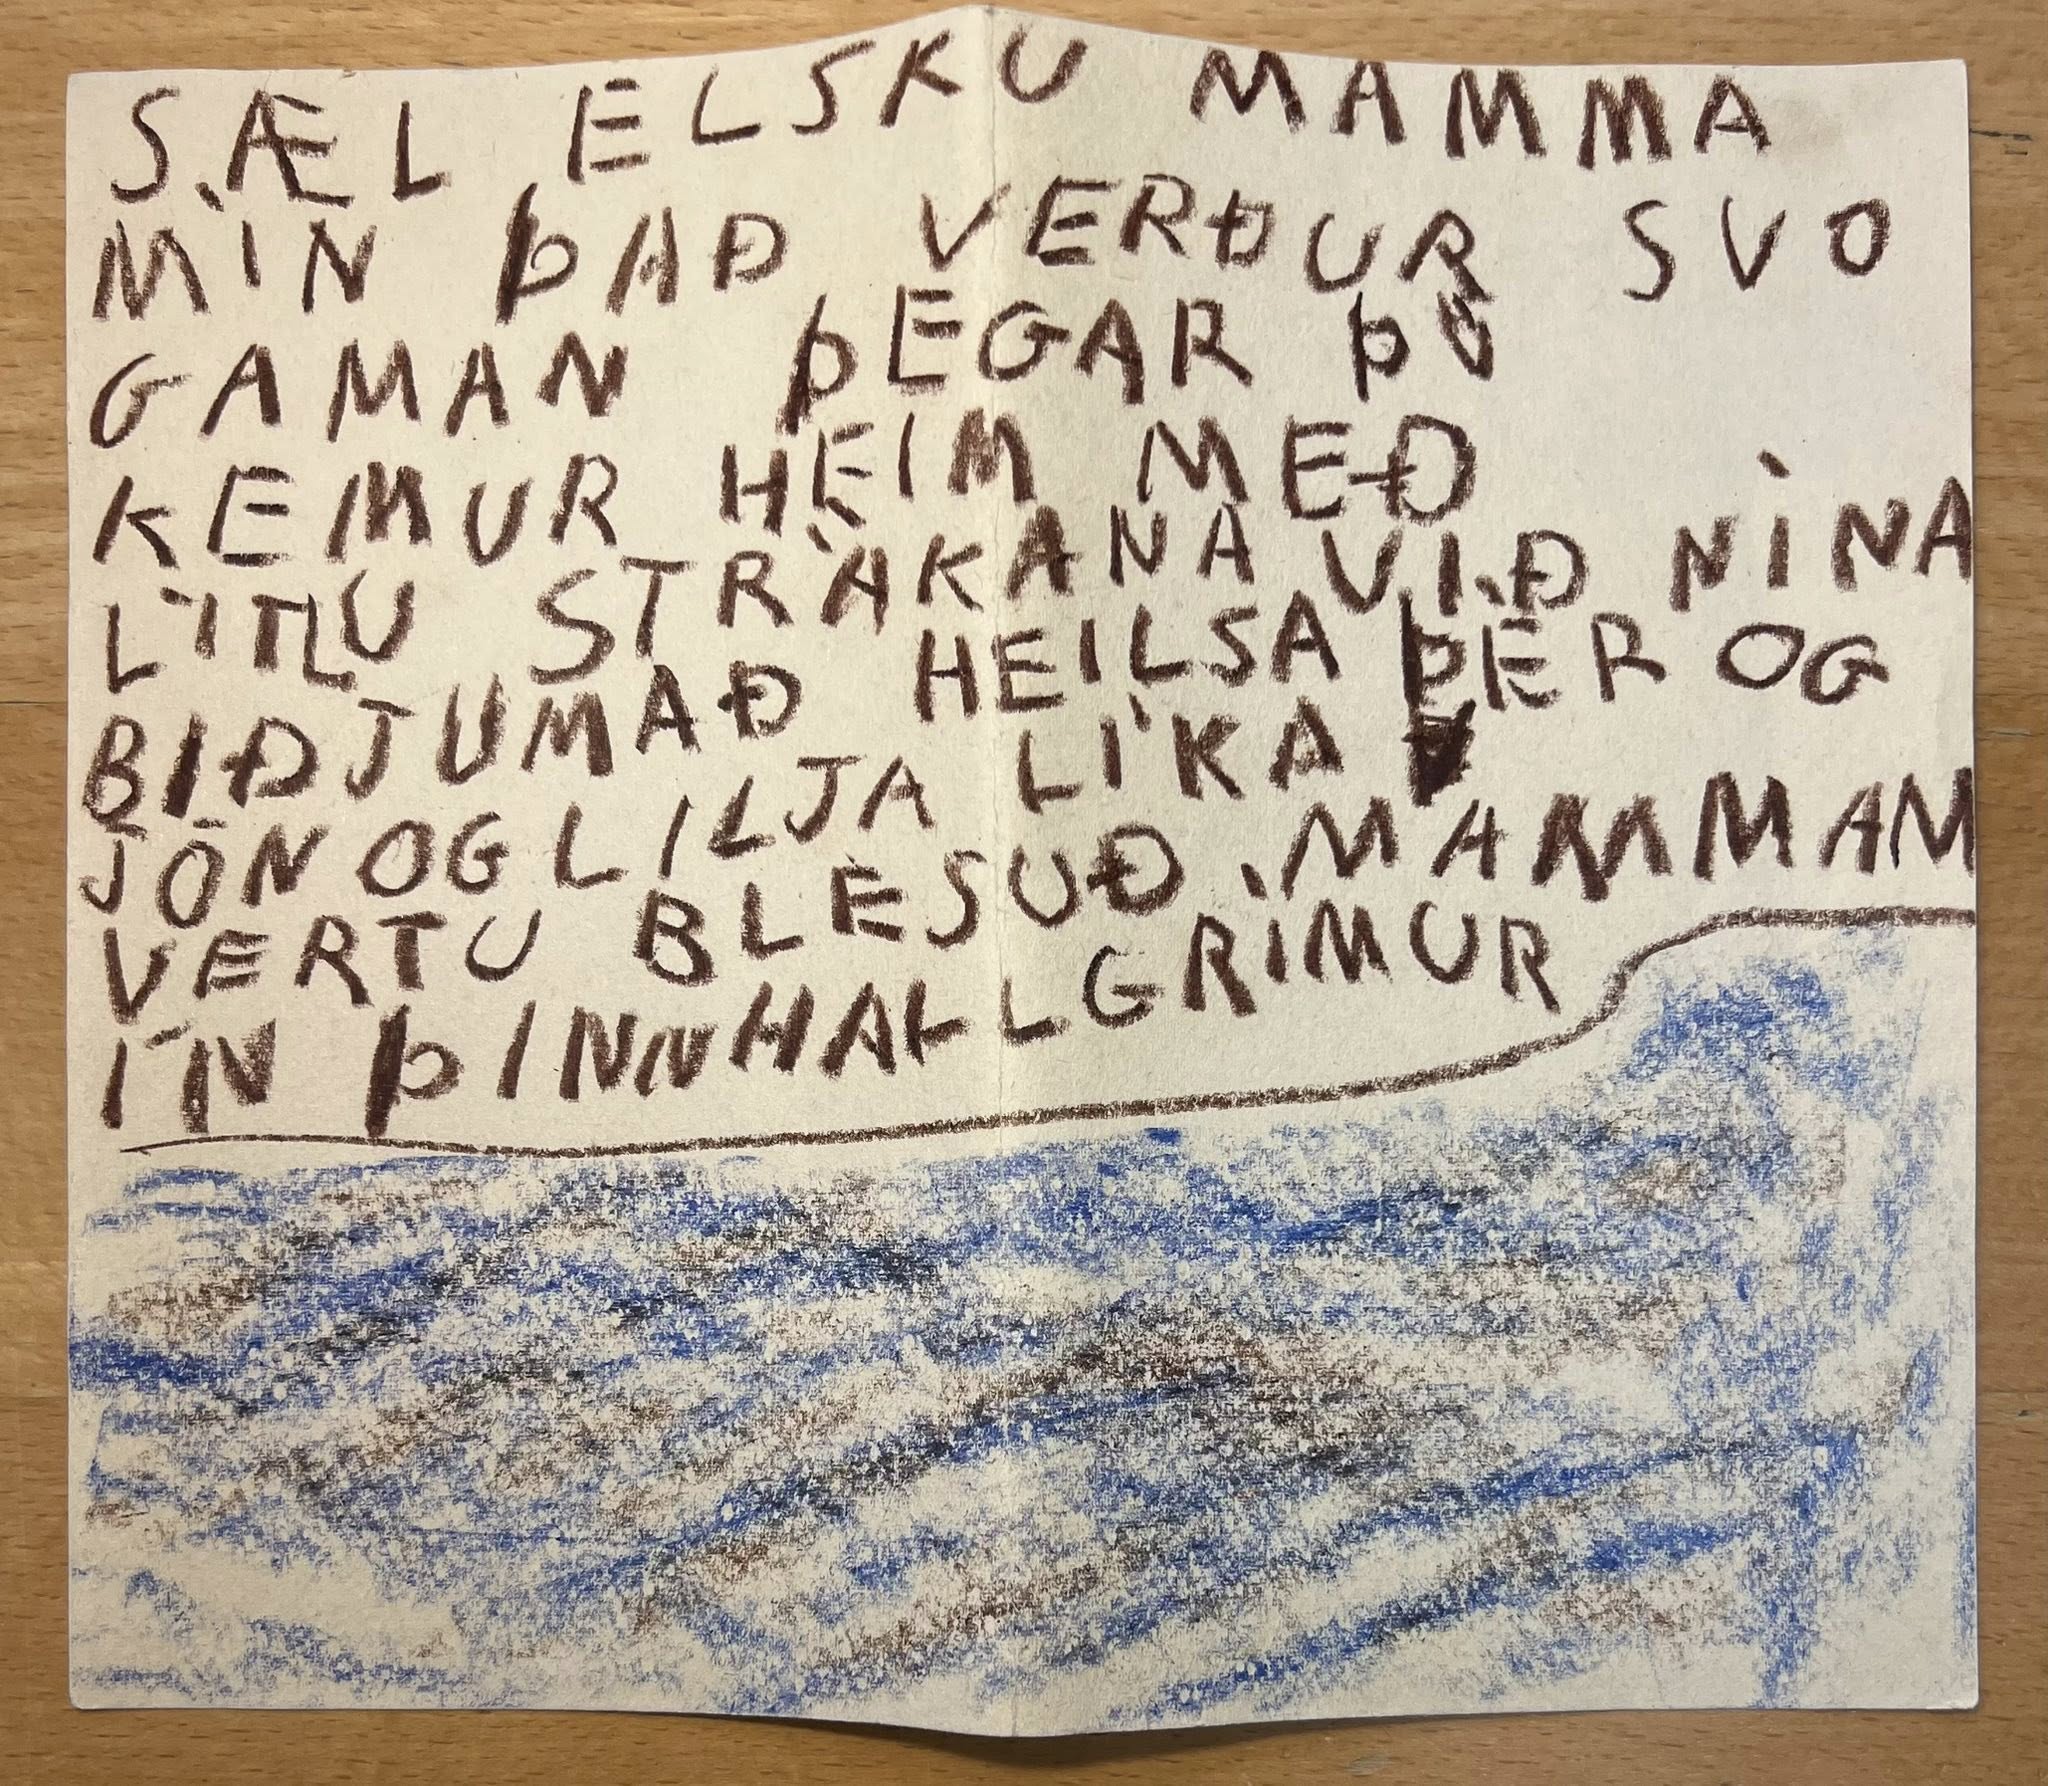 SÆL ELSKU MAMMA
MÍN ÞAÐ VERÐUR SVO
GAMAN ÞEGAR ÞÚ
KEMUR HEIM MEÐ
LITLU STRÁKANA VIÐ NÍNA
BIÐJUMAÐ HEILSA ÞÉR OG
JÓN OG LILJA LÍKA
VERTU BLESUÐ MAMMAM
ÍN ÞINNHALLGRÍMUR